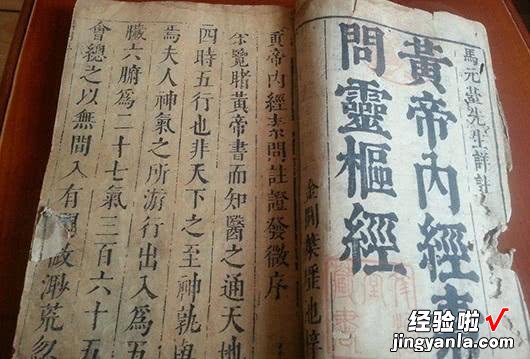 馬元臺先生詳註
黃帝內經素
問靈樞經
金閶葉瑤池梓
黃帝內經素問註證發微序
余覽睹黃帝書而知醫之通天地
四時五行也非天下之至神孰
焉夫人神氣之所游行出入爲五
臟六腑爲二十七氣三百六十五
會總之以無間入有荒忽
经验啦√
jingyanla.com